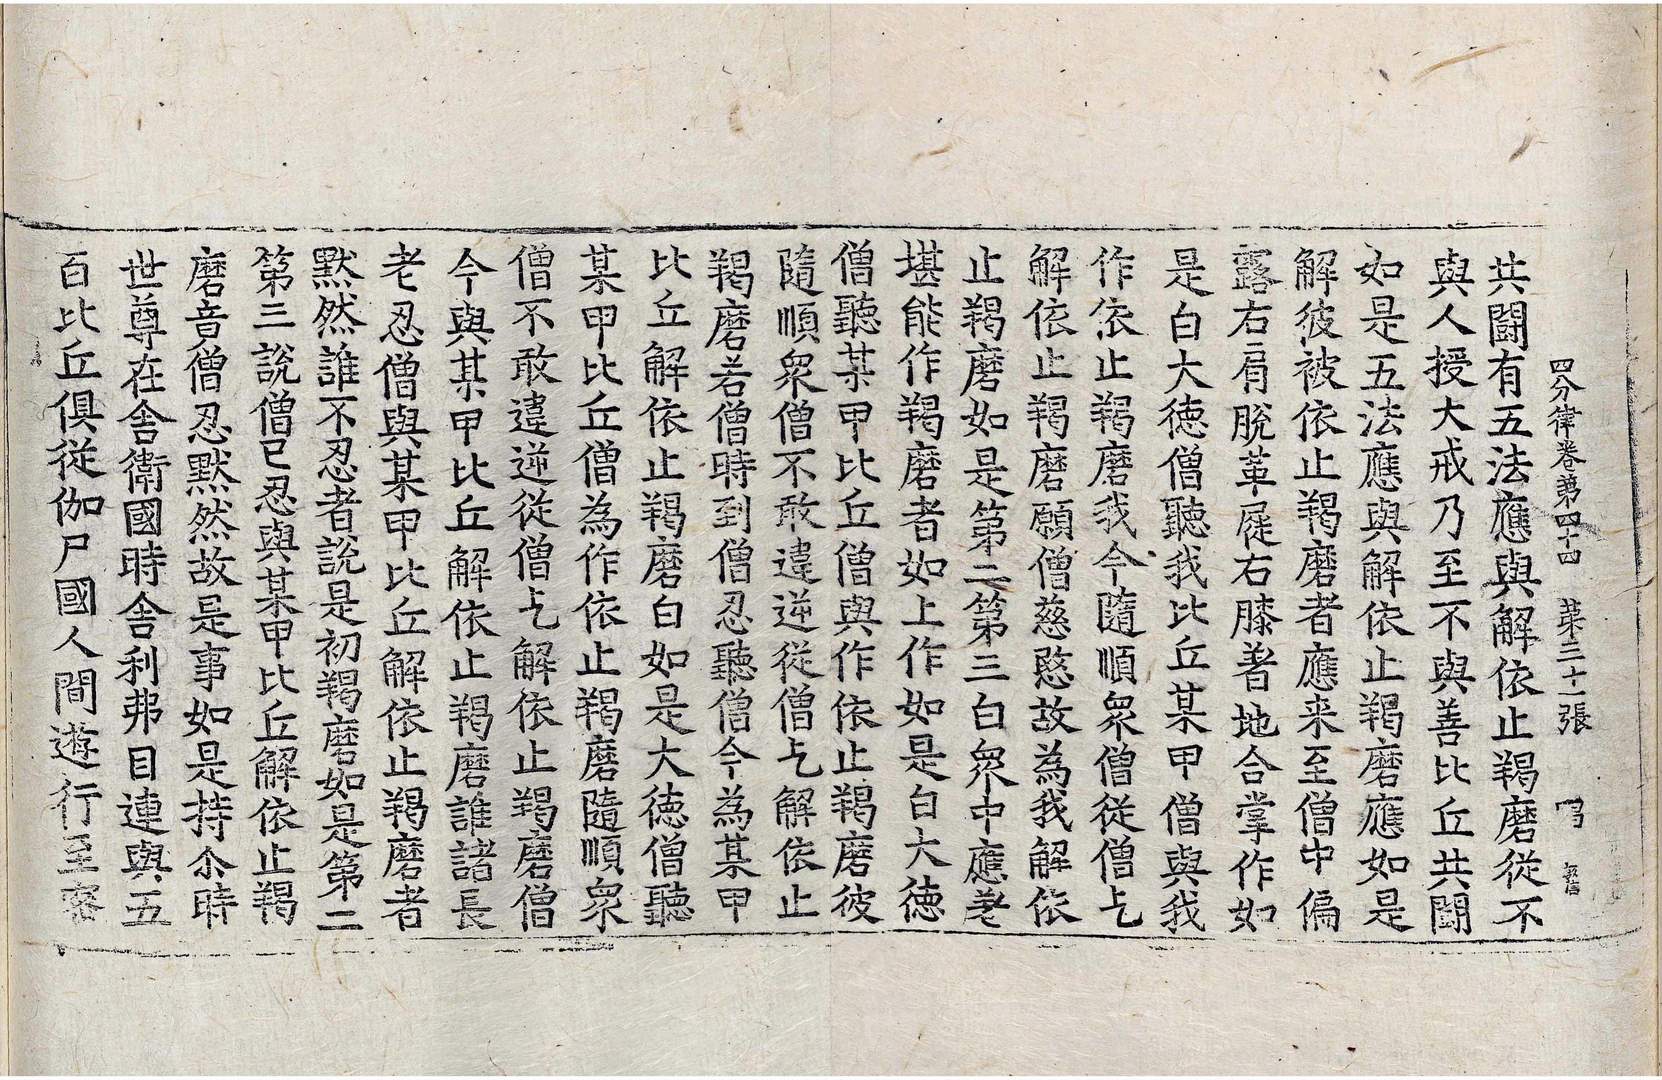 四分律卷第四十四 苐三十一張
共鬪有五法應與解依止羯磨從不
與人授大戒乃至不與善比丘共鬪
如是五法應與解依止羯磨應如是
解彼被依止羯磨者應来至僧中偏
露右肩脫革屣右膝著地合掌作如
是白大徳僧聽我比丘某甲僧與我
作依止羯磨我今隨順衆僧從僧乞
解依止羯磨願僧慈愍故為我解依
止羯磨如是第二第三白衆中應差
堪能作羯磨者如上作如是白大徳
僧聽某甲比丘僧與作依止羯磨彼
隨順衆僧不敢違逆從僧乞解依止
羯磨若僧時到僧忍聽僧今為某甲
比丘解依止羯磨白如是大徳僧聽
某甲比丘僧為作依止羯磨隨順衆
僧不敢違逆從僧乞解依止羯磨僧
今與某甲比丘解依止羯磨誰諸長
老忍僧與某甲比丘解依止羯磨者
黙然誰不忍者說是初羯磨如是第二
第三說僧已忍與某甲比丘解依止羯
磨竟僧忍黙然故是事如是持尒時
世尊在舍衛國時舍利弗目連與五
百比丘俱從伽尸國人間遊行至密